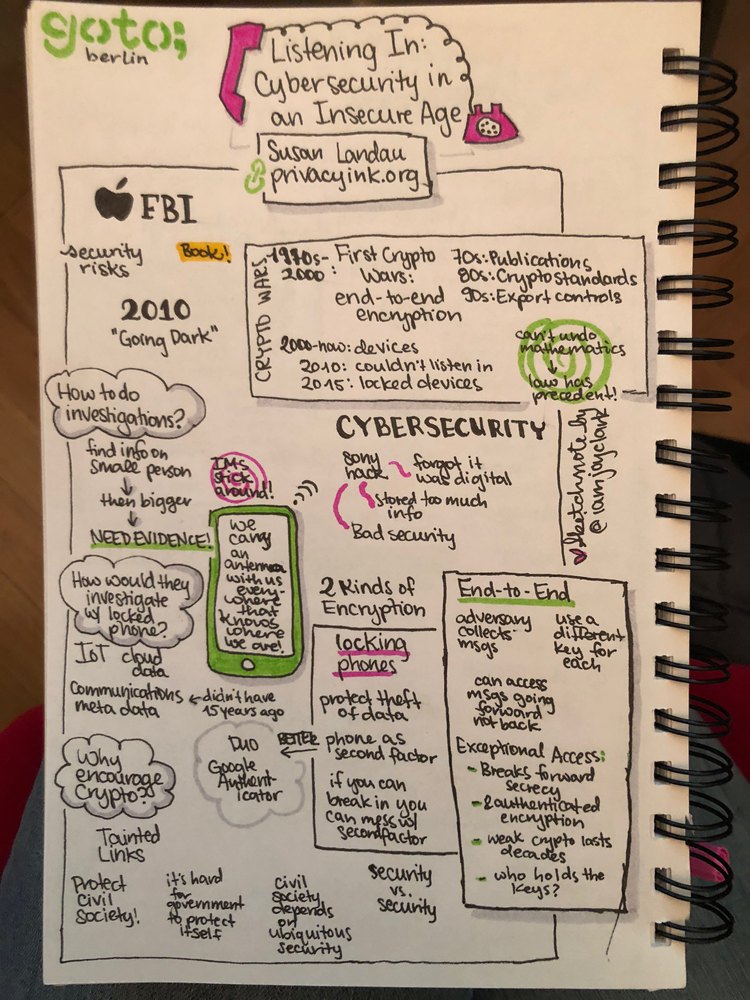 goto;
berlin
Listening In:
Cybersecurity in
an Insecure Age
Susan Landau
privacyink.org
FBI
security
risks
Book!
2010
"Going Dark"
CRYPTO WARS
1970s-
2000:
First Crypto
Wars:
end-to-end
encryption
70s: Publications
80s: Crypto standards
90s: Export controls
2000-now: devices
2010: couldn't listen in
2015: locked devices
can't undo
mathematics
law has
precedent!
How to do
investigations?
find info on
small person
then bigger
NEED EVIDENCE!
IMs
stick
around!
we
carry
an
antennea
with us
every-
where
that
knows
where
we are!
CYBERSECURITY
sony
hack
forgot it
was digital
stored too much
info
Bad security
sketchnote by
@iamjayclark
How would they
investigate
w/ locked
phone?
IoT cloud
data
Communications
meta data
didn't have
15 years ago
2 Kinds of
Encryption
locking
phones
protect theft
of data
phone as
second factor
if you can
break in you
can mess w/
second factor
BETTER
Duo
Google
Authent-
icator
End-to-End
adversary
collects
msgs
use a
different
key for
each
can access
msgs going
forward
not back
Exceptional Access:
- Breaks forward
secrecy
- & authenticated
encryption
- weak crypto lasts
decades
- who holds the
keys?
Why
encourage
Crypto?
Tainted
Links
Protect
civil
society!
it's hard
for
government
to protect
itself
civil
society
depends
on
ubiquitous
security
security
vs.
security